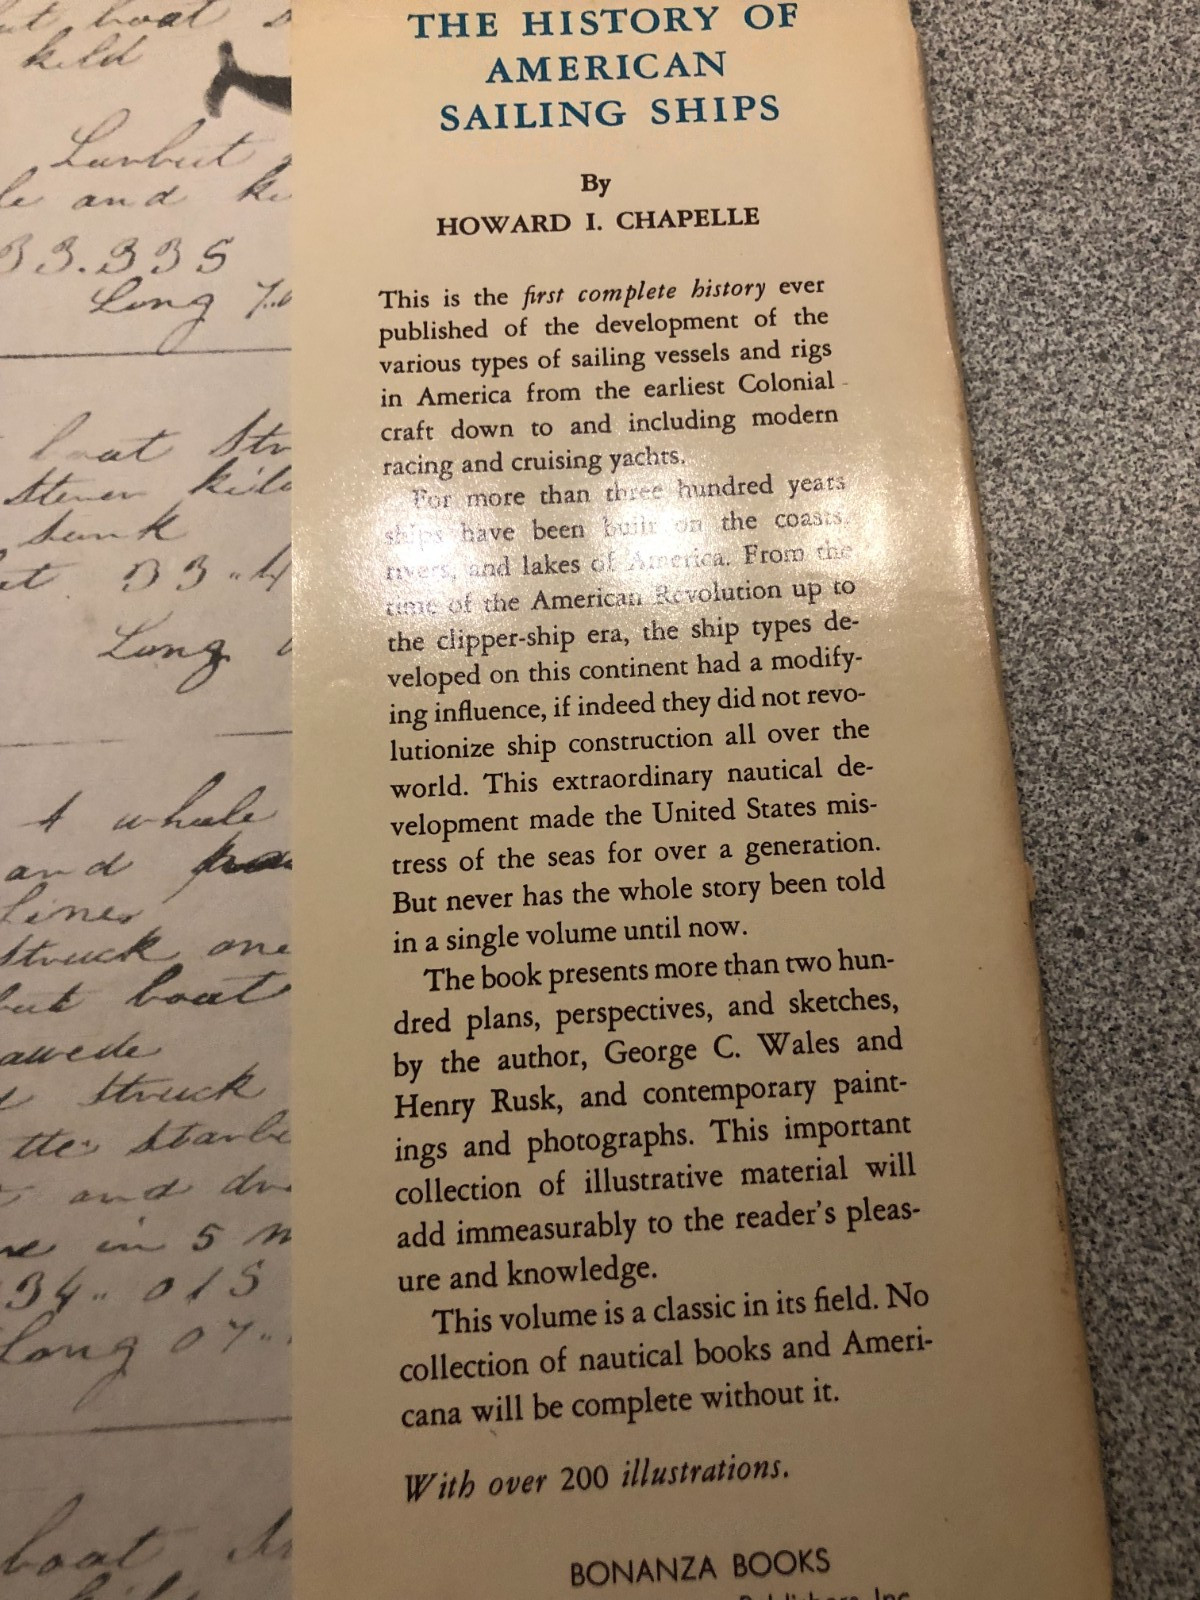 boat
kild
Lanbert
and
33.335
Long
THE HISTORY OF
AMERICAN
SAILING SHIPS
By
HOWARD I. CHAPELLE
This is the first complete history ever
published of the development of the
various types of sailing vessels and rigs
in America from the earliest Colonial
craft down to and including modern
racing and cruising yachts.
For more than three hundred years
ships have been built on the coasts,
rivers, and lakes of America. From the
time of the American Revolution up to
the clipper-ship era, the ship types de-
veloped on this continent had a modify-
ing influence, if indeed they did not revo-
lutionize ship construction all over the
world. This extraordinary nautical de-
velopment made the United States mis-
tress of the seas for over a generation.
But never has the whole story been told
in a single volume until now.
The book presents more than two hun-
dred plans, perspectives, and sketches,
by the author, George C. Wales and
Henry Rusk, and contemporary paint-
ings and photographs. This important
collection of illustrative material will
add immeasurably to the reader's pleas-
ure and knowledge.
This volume is a classic in its field. No
collection of nautical books and Ameri-
cana will be complete without it.
With over 200 illustrations.
BONANZA BOOKS
boat
sunk
33
Long
A whale
and
Lines
Struck one
but boat
Struck
and
in 5
34 " 015
Long 07
boat